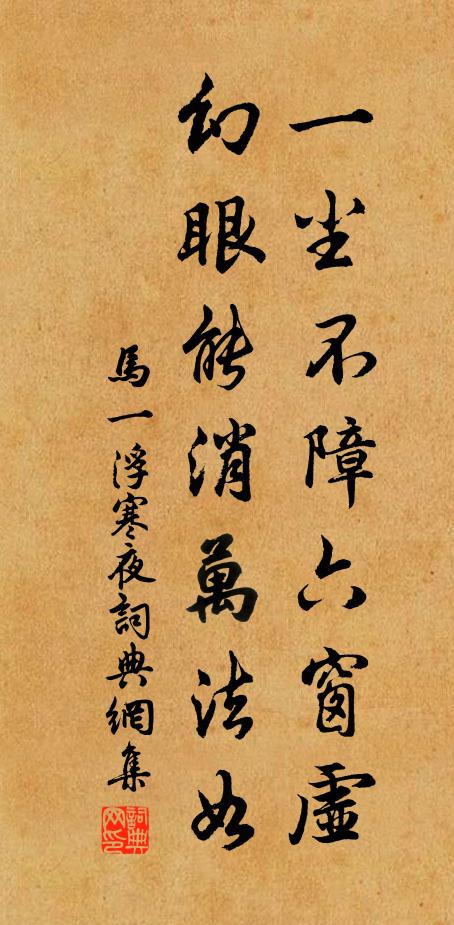 一尘不障六窗虛
幻眼能消萬法如
馬一浮寒夜詞典網集
詞典网印